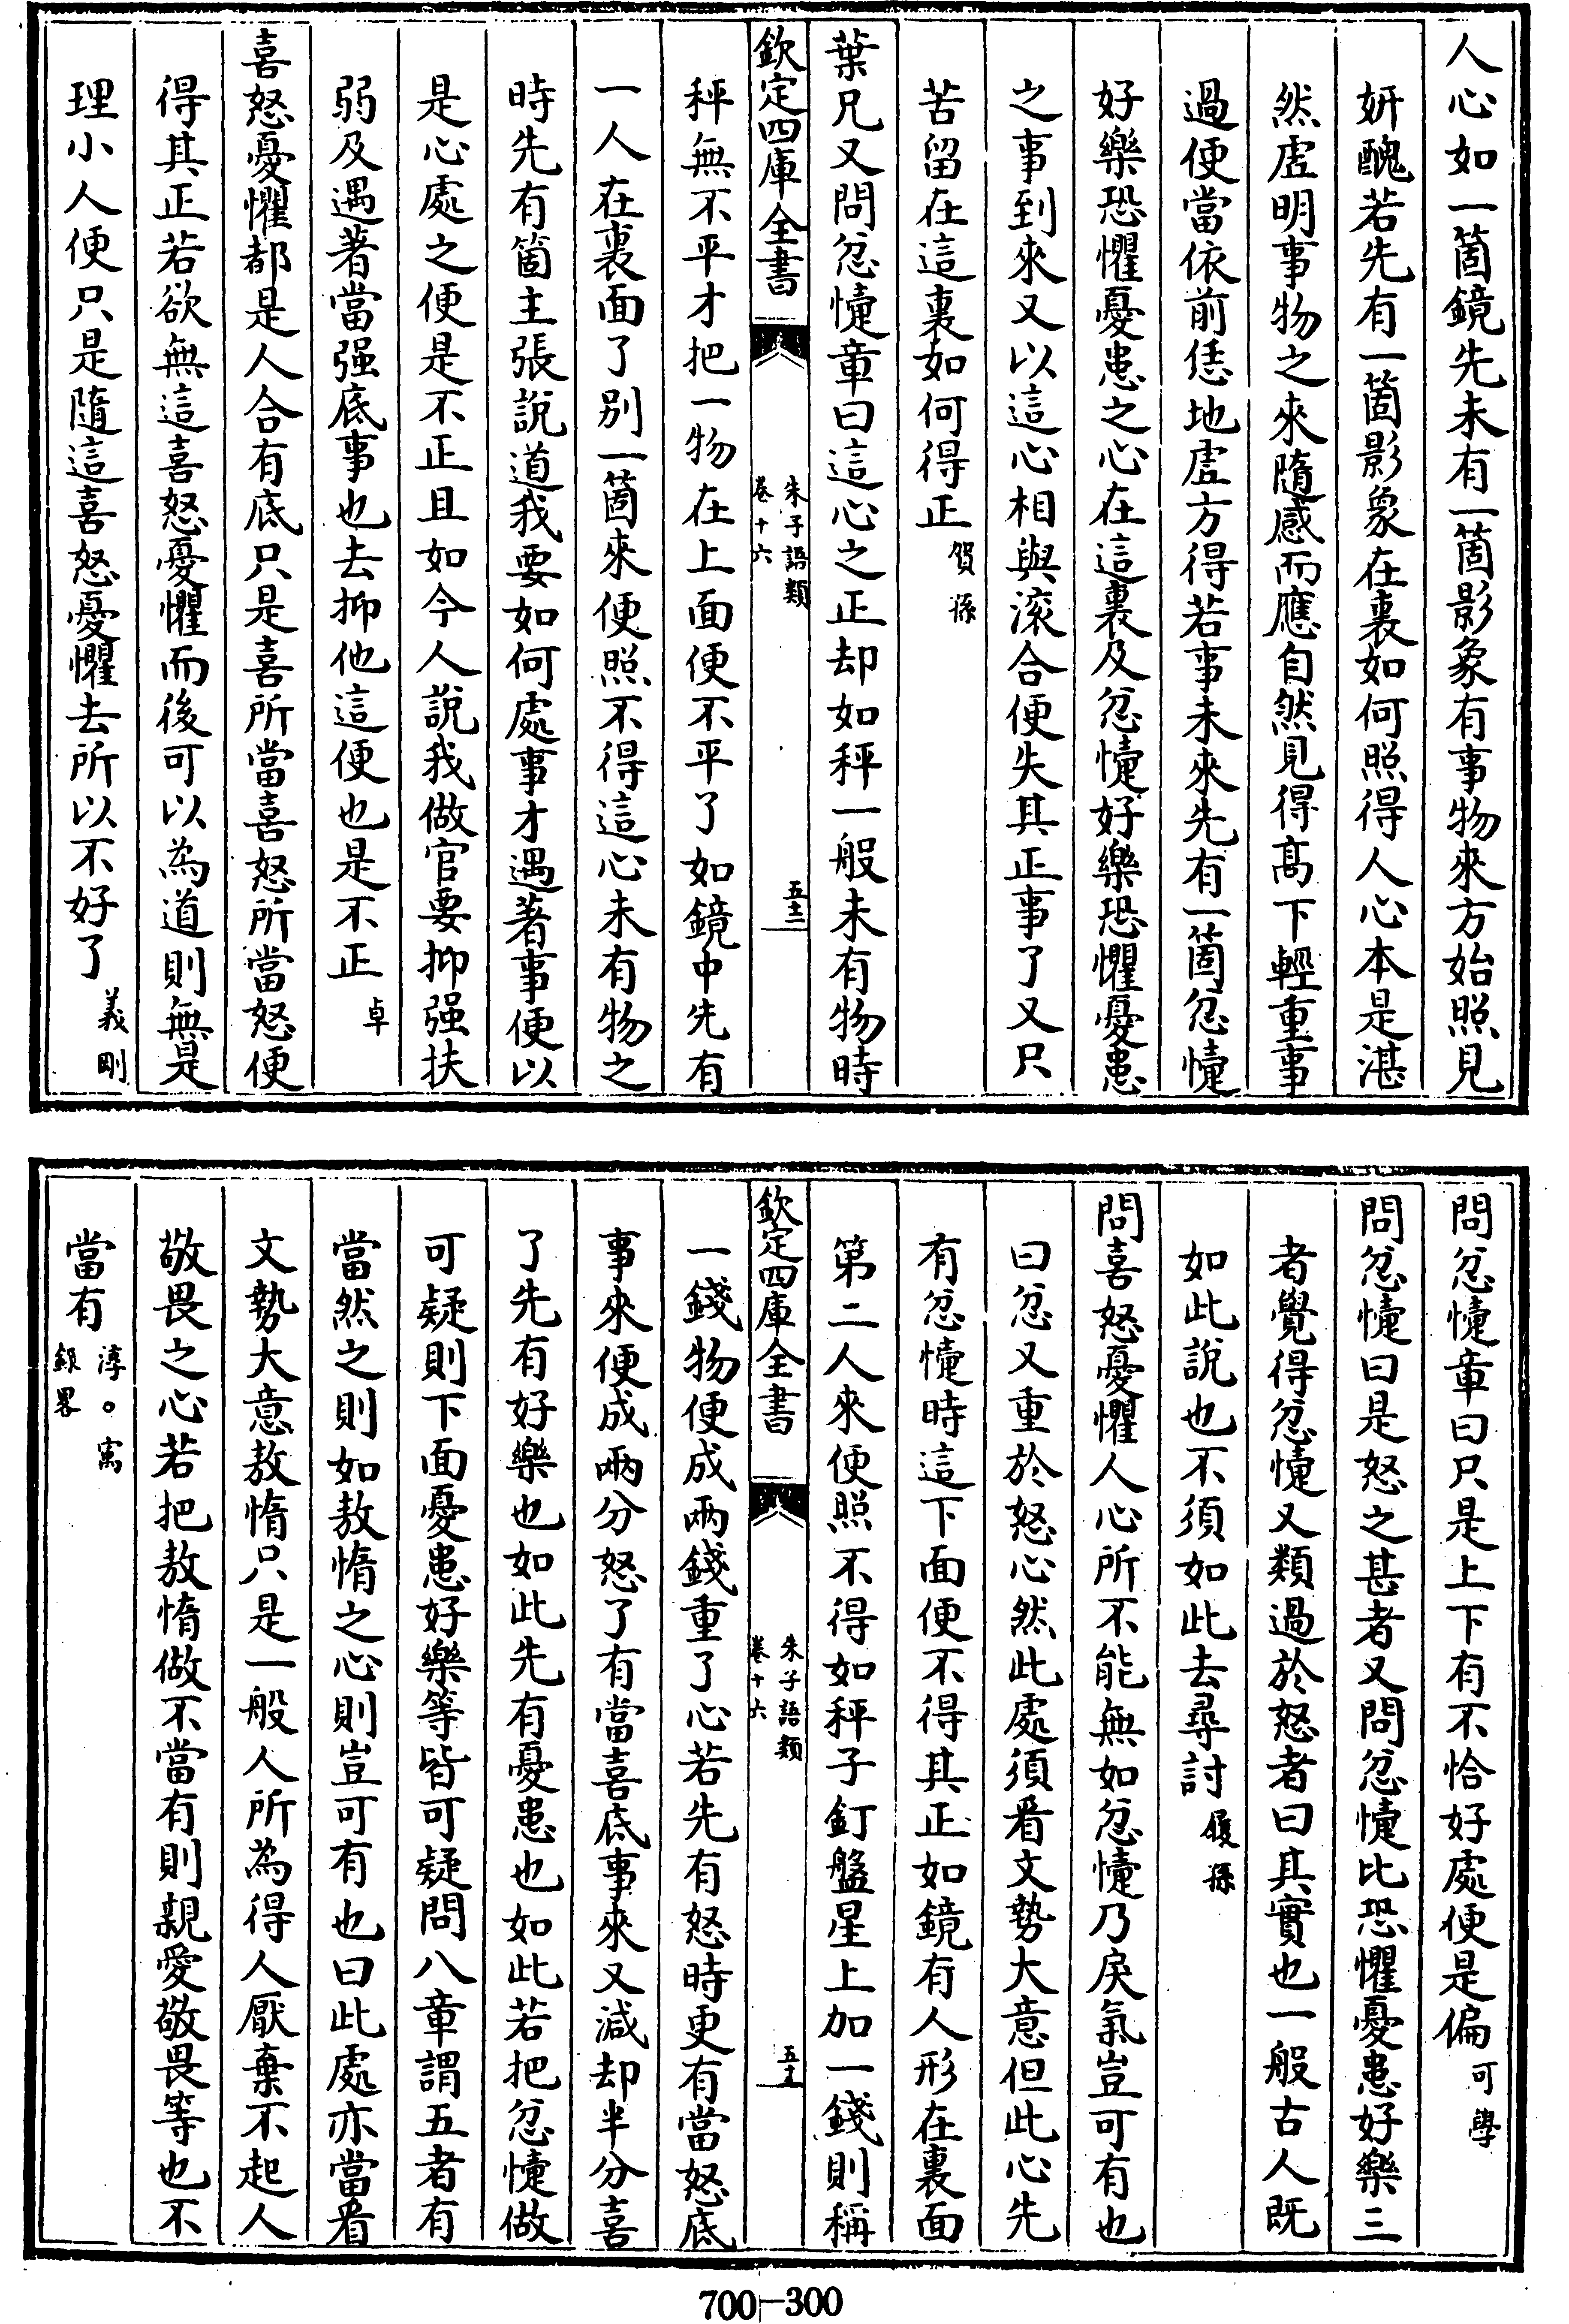 人心如一箇鏡先未有一箇影象有事物來方始照見
妍醜若先有一箇影象在裏如何照得人心本是湛
然虛明事物之來隨感而應自然見得髙下輕重事
過便當依前恁地虛方得若事未來先有一箇忿懥
好樂恐懼憂患之心在這裏及忿懥好樂恐懼憂患
之事到來又以這心相與滚合便失其正事了又只
苦留在這裏如何得正賀孫
葉兄又問忿懥章曰這心之正却如秤一般未有物時
欽定四庫全書
朱子語類
卷十六
秤無不平才把一物在上面便不平了如鏡中先有
一人在裏面了别一箇來便照不得這心未有物之
時先有箇主張說道我要如何處事才遇著事便以
是心處之便是不正且如今人說我做官要抑强扶
弱及遇著當强底事也去抑他這便也是不正卓
喜怒憂懼都是人合有底只是喜所當喜怒所當怒便
得其正若欲無這喜怒憂懼而後可以為道則無是
理小人便只是隨這喜怒憂懼去所以不好了義剛
問忿懥章曰只是上下有不恰好處便是偏可學
問忿懥曰是怒之甚者又問忿懥比恐懼憂患好樂三
者覺得忿懥又類過於怒者曰其實也一般古人既
如此說也不須如此去尋討履孫
問喜怒憂懼人心所不能無如忿懥乃戾氣豈可有也
曰忿又重於怒心然此處須看文勢大意但此心先
有忿懥時這下面便不得其正如鏡有人形在裏面
第二人來便照不得如秤子釘盤星上加一錢則稱
欽定四庫全書
朱子語類
卷十六
一錢物便成兩錢重了心若先有怒時更有當怒底
事來便成兩分怒了有當喜底事來又減却半分喜
了先有好樂也如此先有憂患也如此若把忿懥做
可疑則下面憂患好樂等皆可疑問八章謂五者有
當然之則如敖惰之心則豈可有也曰此處亦當看
文勢大意敖惰只是一般人所為得人厭棄不起人
敬畏之心若把敖惰做不當有則親愛敬畏等也不
當有淳。寓
錄畧
700-300